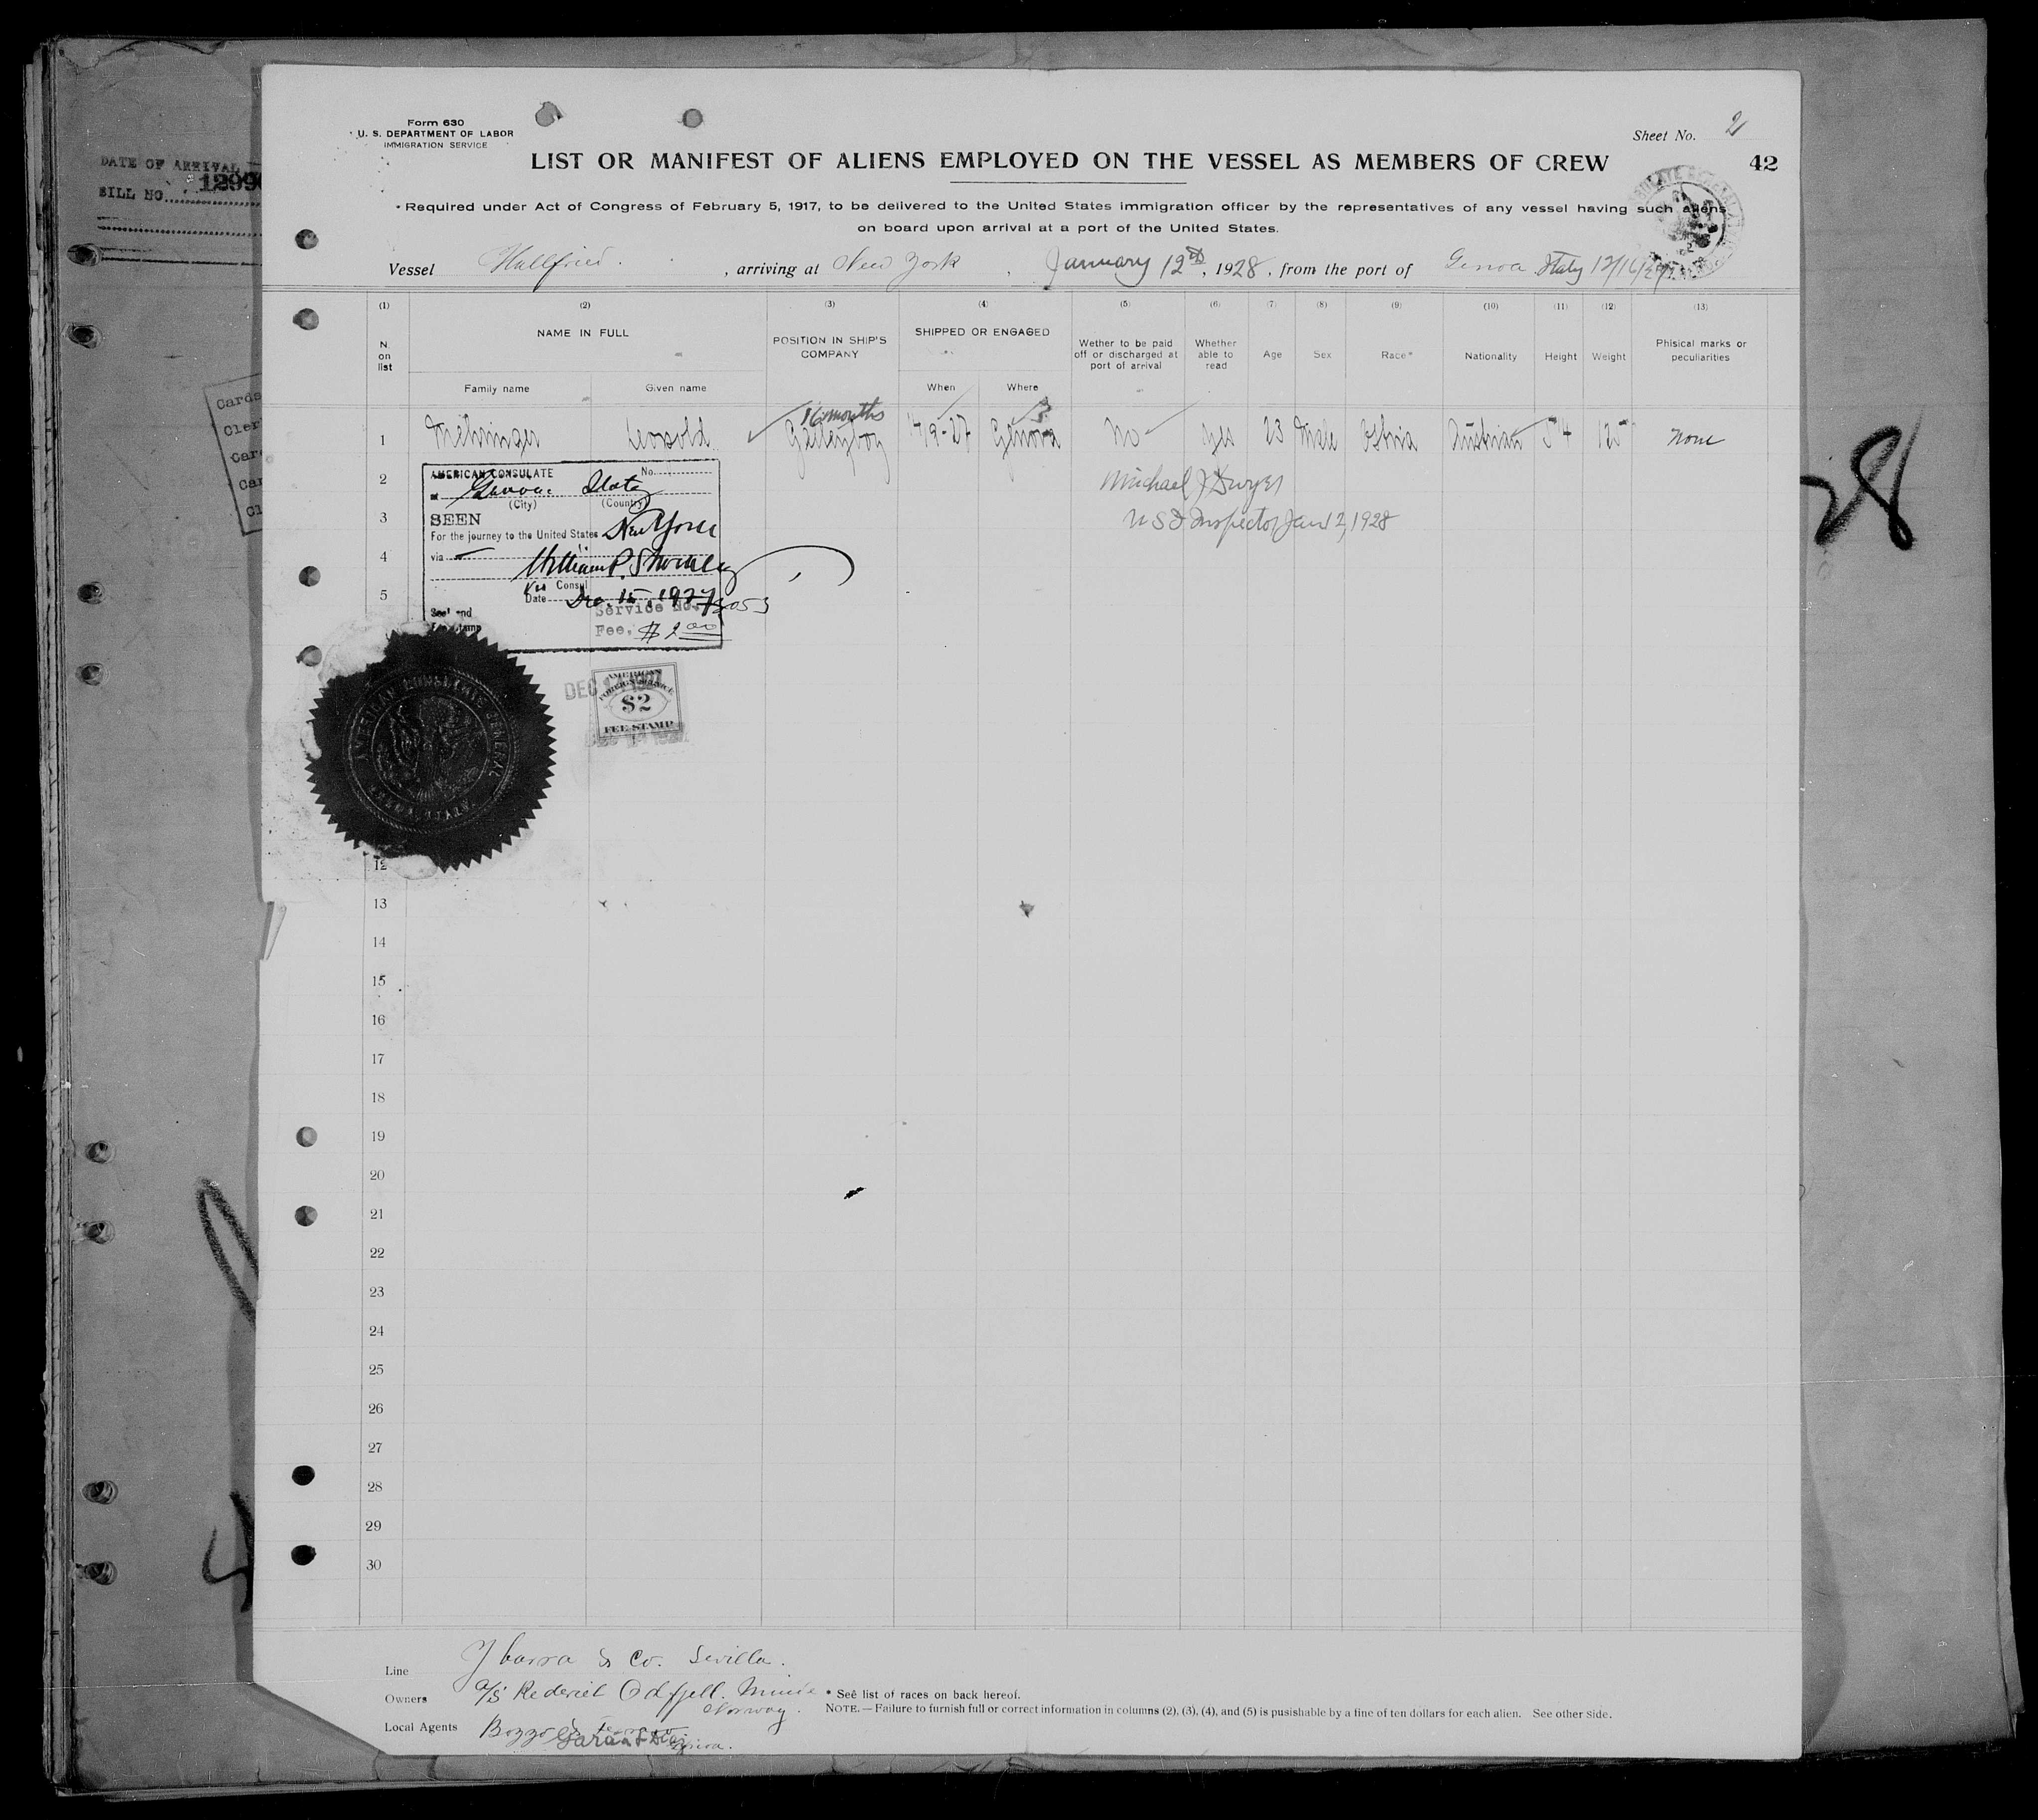 Form 630
U. S. DEPARTMENT OF LABOR
IMMIGRATION SERVICE
Sheet No. 2
DATE OF ARRIVAL
BILL NO. 1299
LIST OR MANIFEST OF ALIENS EMPLOYED ON THE VESSEL AS MEMBERS OF CREW
42
Required under Act of Congress of February 5, 1917, to be delivered to the United States immigration officer by the representatives of any vessel having such aliens
on board upon arrival at a port of the United States.
Vessel Hallfried. , arriving at New York , January 12 , 1928 , from the port of Genoa Italy 12/16/27
(1) (2) (3) (4) (5) (6) (7) (8) (9) (10) (11) (12) (13)
N. on list NAME IN FULL POSITION IN SHIP'S COMPANY SHIPPED OR ENGAGED Wether to be paid off or discharged at port of arrival Whether able to read Age Sex Race* Nationality Height Weight Phisical marks or peculiarities
Family name Given name When Where
16 months 3
1 Mehringer Leopold Galleyboy 7/9-27 Genova No yes 23 Male Ostria Austrian 5'4 125 none
2 Michael J Dwyer
3 U S I Inspector Jan 12, 1928
4
5
AMERICAN CONSULATE No.
at Genoa. Italy
(City) (Country)
SEEN
For the journey to the United States New York
via
William P. Shockley
Vice Consul
Date Dec. 15, 1927
Service No. 13053
Seal and
Fee stamp
Fee, $2.00
AMERICAN CONSULATE GENERAL
GENOA, ITALY
DEC 1927
AMERICAN
FOREIGN SERVICE
$2
FEE STAMP
12
13
14
15
16
17
18
19
20
21
22
23
24
25
26
27
28
29
30
28
Line Ybarra & Co. Sevilla.
Owners A/S Rederiet Odfjell. Minde
Norway.
* See list of races on back hereof.
NOTE. — Failure to furnish full or correct information in columns (2), (3), (4), and (5) is pusishable by a fine of ten dollars for each alien. See other side.
Local Agents Bozzo &
Garcia & Diaz
Genoa.